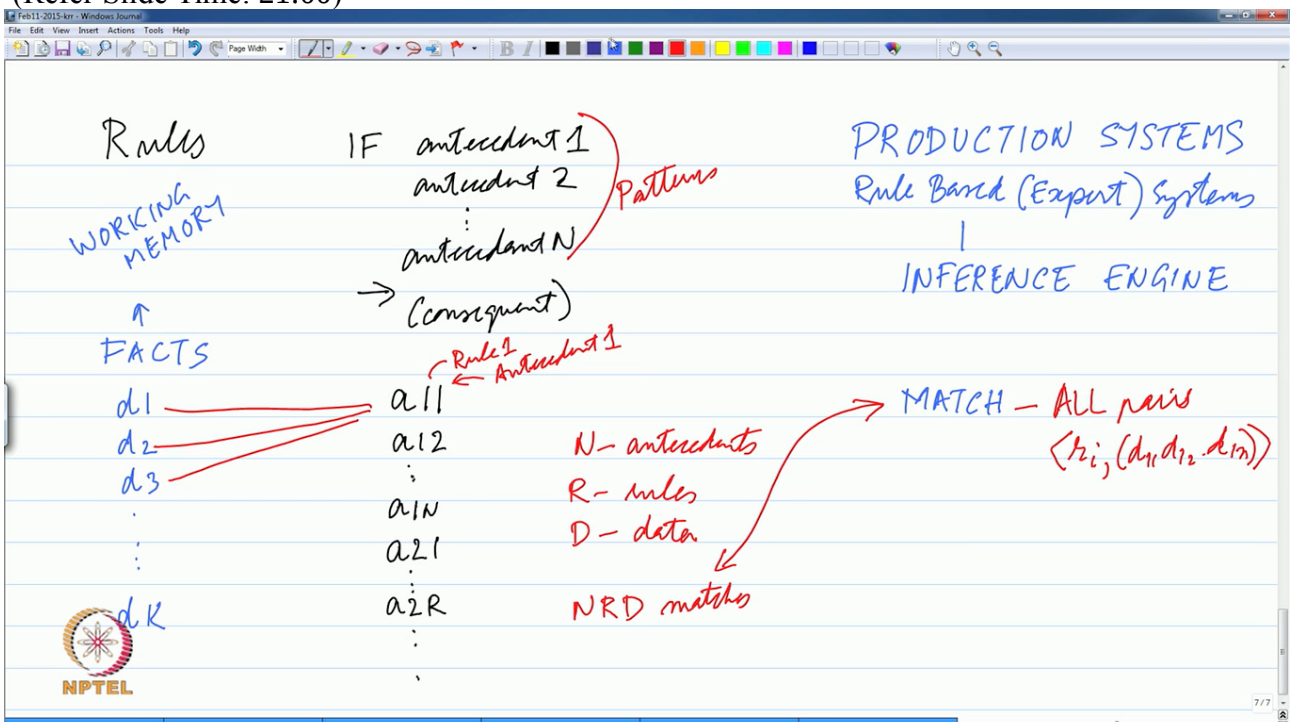 (Refer Slide Time: 21:00)
Feb11-2015-krr - Windows Journal
File Edit View Insert Actions Tools Help
Page Width
B I
Rules
IF antecedent 1
antecedent 2
antecedent N
→ (consequent)
Patterns
WORKING
MEMORY
↑
FACTS
d1
d2
d3
dK
Rule 1
← Antecedent 1
a11
a12
a1N
a21
a2R
N - antecedents
R - rules
D - data
NRD matches
PRODUCTION SYSTEMS
Rule Based (Expert) Systems
INFERENCE ENGINE
MATCH - ALL pairs
⟨ri, (d11, d12..d1n)⟩
NPTEL
7/7